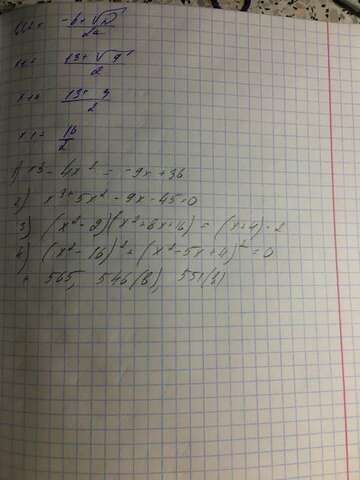 x1,2 = (-b ± √D)/2a
x1,2 = (13 ± √9)/2
x1,2 = (13 ± 3)/2
x1 = 16/2
1) x³ - 4x² = -9x + 36
2) x³ + 5x² - 9x - 45 = 0
3) (x² - 2)(x² + 8x + 16) = (x + 4) · 2
4) (x² - 16)² + (x² - 5x + 4)² = 0
565, 546(в), 551(в)